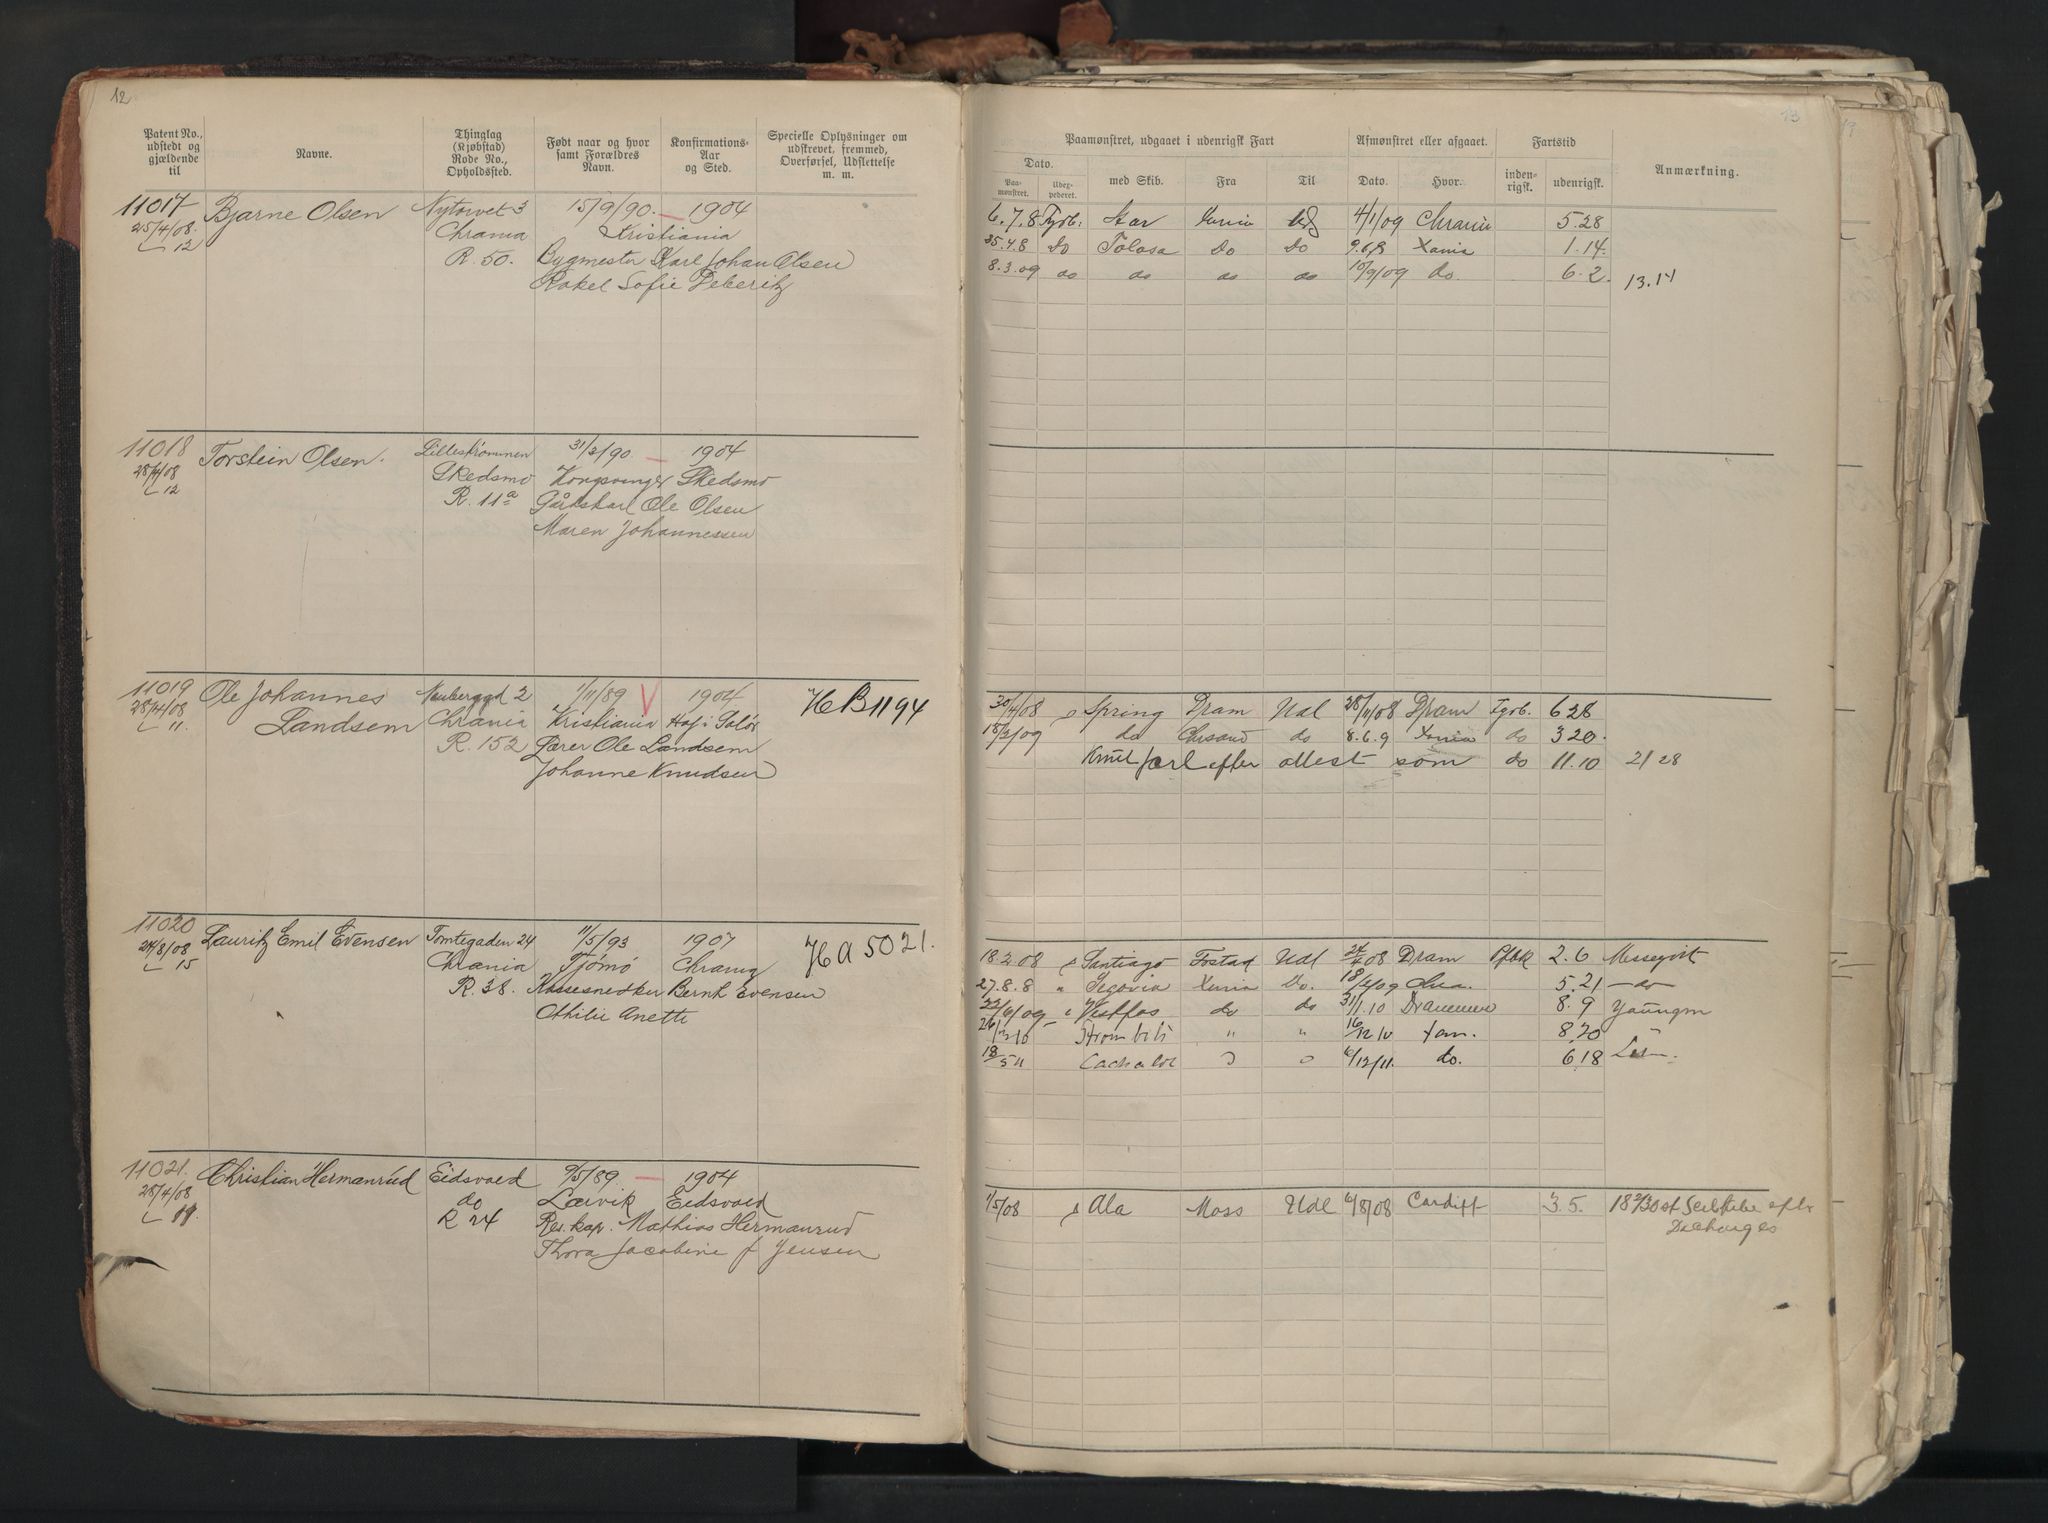 12
Patent No., udstedt og gjældende til
Navne.
Thinglag (Kjøbstad) Rode No., Opholdssted.
Født naar og hvor samt Forældres Navn.
Konfirmations- Aar og Sted.
Specielle Oplysninger om udskrevet, fremmed, Overførsel, Udslettelse m. m.
11017 Bjarne Olsen Nytorvet 3 15/9/90. — 1904
25/4/08. Chrania Kristiania
12 R. 50. Bygmester Karl Johan Olsen
Rakel Sofie Deberitz
11018 Torstein Olsen. Lillestrømmen 31/2/90 — 1904
28/4/08 Skedsmo Kongsvinger Skedsmo
12 R. 11a Gårdskarl Ole Olsen
Maren Johannessen
11019 Ole Johannes 2 1/11/89 V 1904 HB1194
28/4/08 Landsem Chrania Kristiania Hof i Solør
11. R. 152 Ole Landsem
Johanne Knudsen
11020 Lauritz Emil Evensen Tomtegaden 24 11/5/93 1907 HA 5021.
27/8/08 Chrania Tjømø Chrania
15 R. 38. Kassesnedker Bernh Evensen
Othilie Anette
11021. Christian Hermanrud Eidsvold 9/5/89. — 1904
28/4/08 do Larvik Eidsvold
11. R 24 Res. kap. Mathias Hermanrud
Thora Jacobine f Jensen
13
Paamønstret, udgaaet i udenrigsk Fart
Afmønstret eller afgaaet.
Fartstid
Anmærkning.
Dato.
Paa- mønstret.
Udex- pederet.
med Skib.
Fra
Til
Dato.
Hvor.
inden- rigsk.
udenrigsk.
6.7.8 Fyrb: 4/1/09 Chrania 5.28
25.4.8 Do Tolosa Do Do 9.6.8 Xania 1.14.
8.3.09 do do do do 10/9/09 do. 6.2. 13.14
30/4/08 s Spring Dram Udl 28/11/08 Dram Fyrb. 6 28
18/2/09 do Chrsand do 8.6.9 Xania do 3 20.
Knut Jarl efter attest som do 11.10 21 28
18.2.08 s Santiago Udl 24/4/08 Dram 2.6 Messegut
27.8.8 " Segovia Xania Do. 18/2/09 5.21 — do —
22/6/09 " Vestfos do do 31/1.10 Drammen 8.9 Youngm
26/3 10 Stromboli " " 16/12 10 Xan. 8.20 "
18/5 11 Cachalot 6/12/11. do. 6.18
1/5/08 s Ala Moss Udl 6/8/08 Cardiff 3.5.